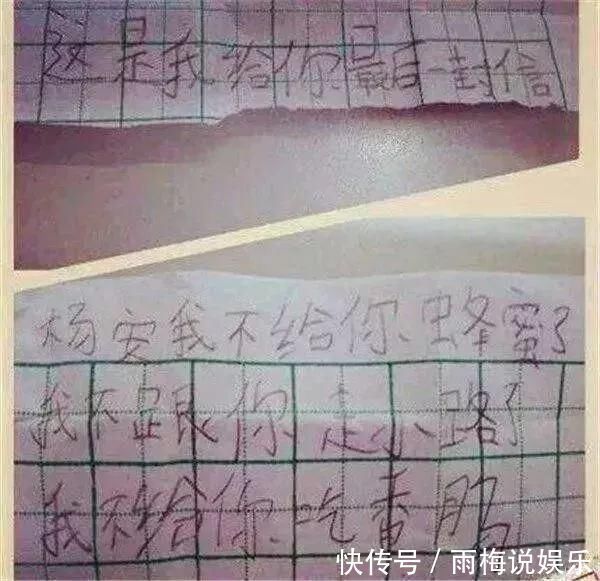 这是我给你最后一封信
杨安我不给你蜂蜜了
我不跟你走小路了
我不给你吃香肠
快传号/雨梅说娱乐